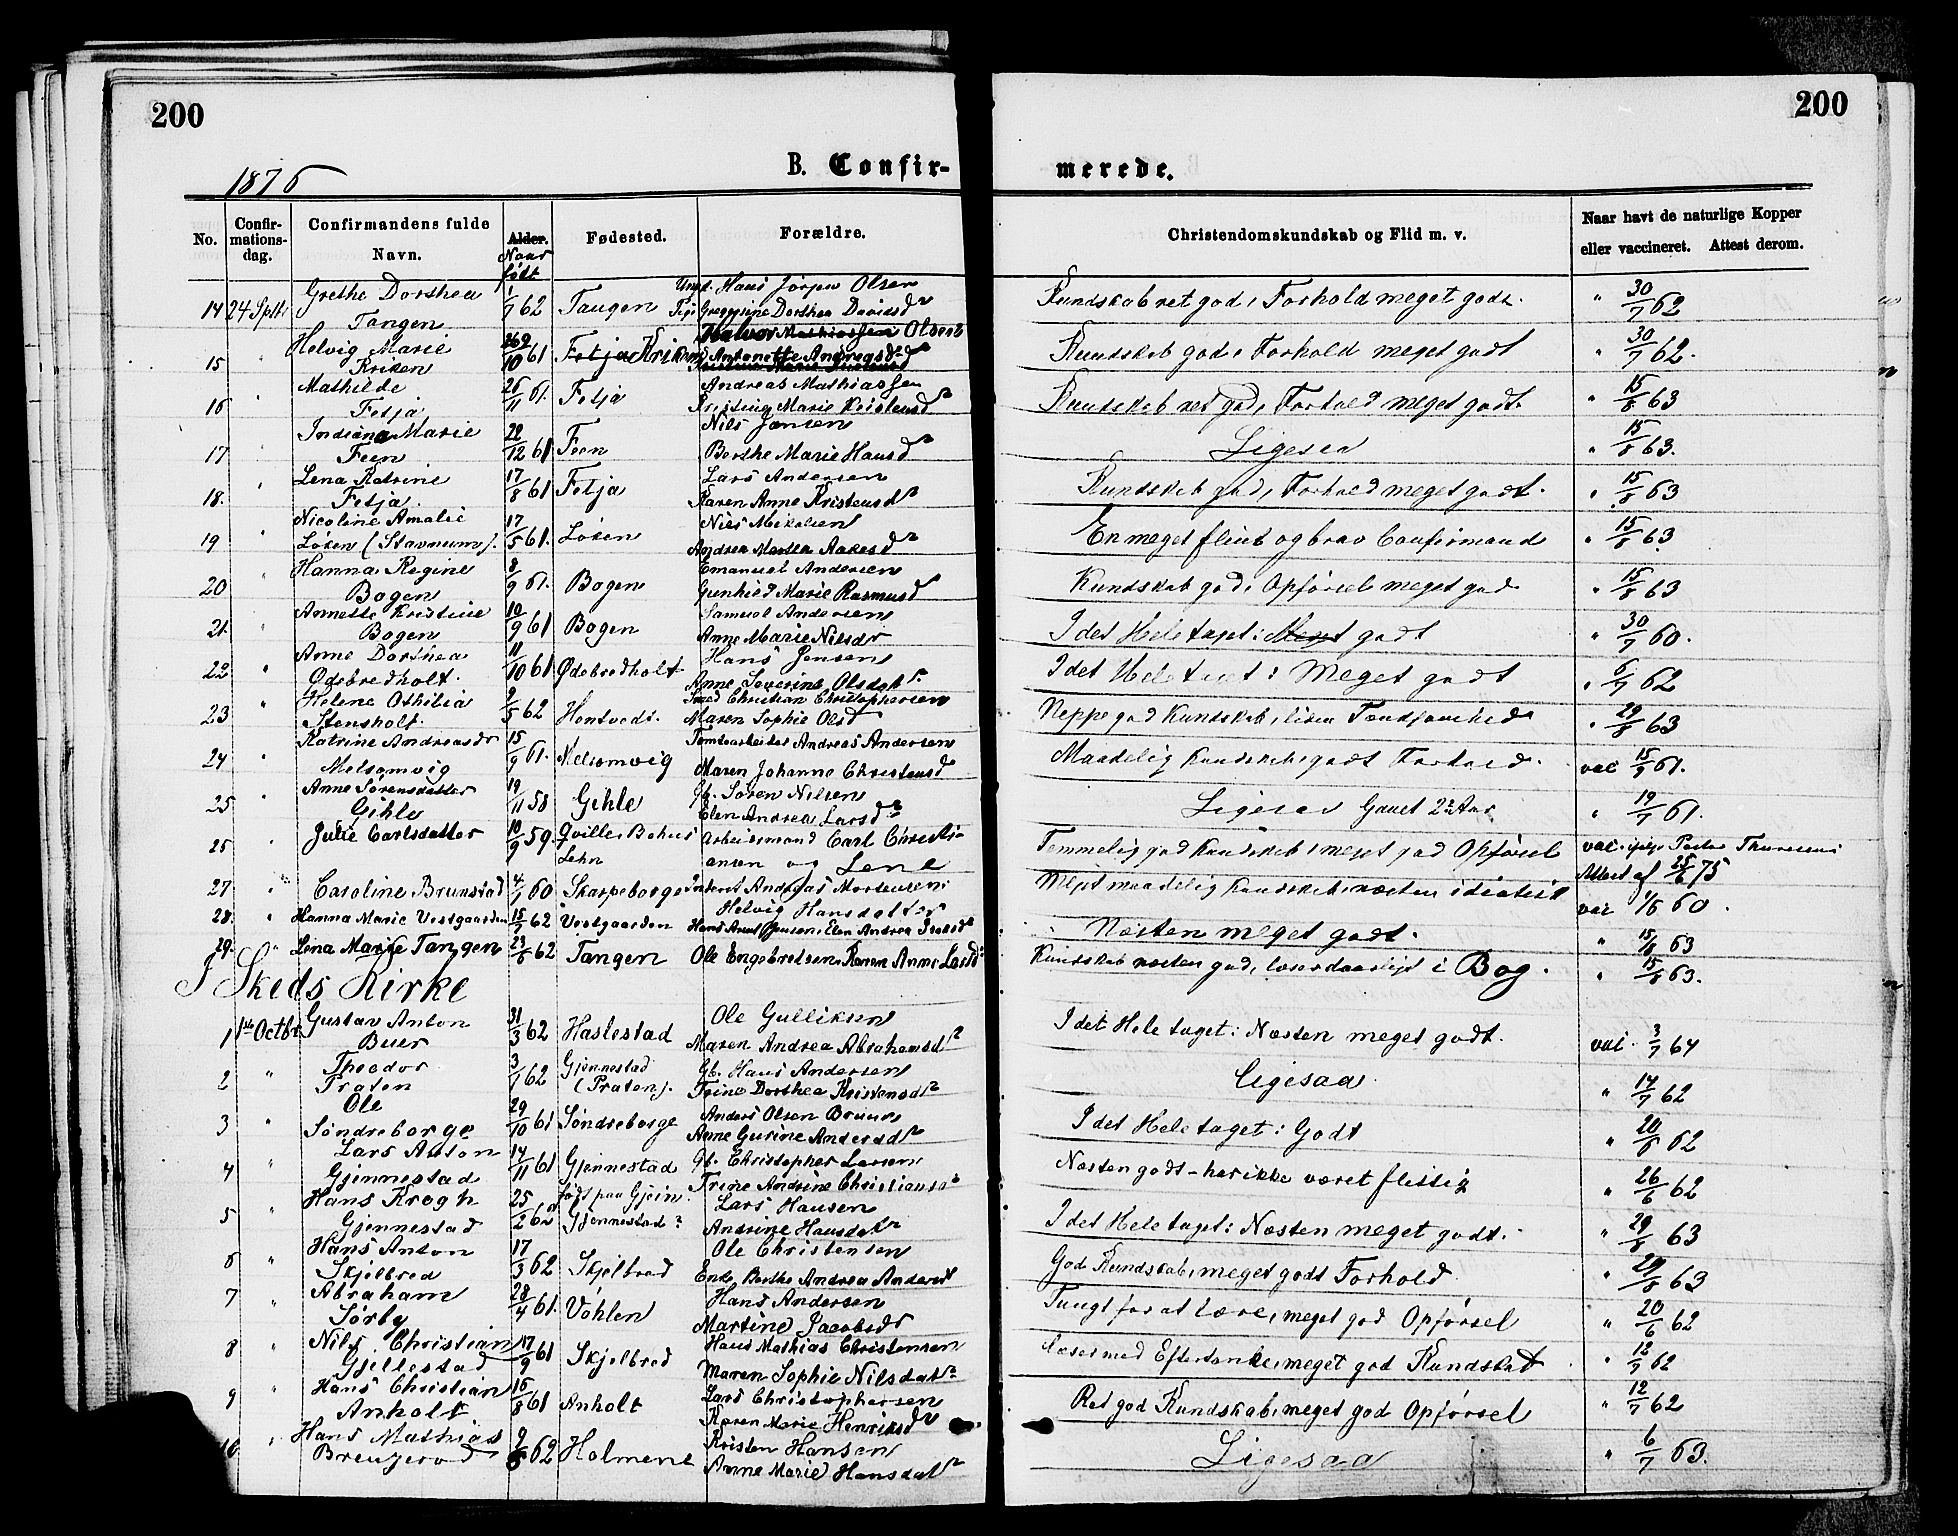 200
200
1876
B. Confir-
merede.
No.
Confir-
mations-
dag.
Confirmandens fulde
Navn.
Alder.
Naar
født
Fødested.
Forældre.
Christendomskundskab og Flid m. v.
Naar havt de naturlige Kopper
eller vaccineret. Attest derom.
14 24 Sptbr Grethe Dorthea Tangen 1/7 62 Tangen Hans Jørgen Olsen Dorthea Davidsdr Kundskab ret god, Forhold meget godt. " 30/7 62
15 " Helvig Marie Kriken 10 61 Fetja Kriken Olsen Antonette Andreasdr Kundskab god, Forhold meget godt " 30/7 62.
16 " Mathilde Fetja 26/11 61. Fetja Andreas Mathiassen Kristine Marie Kristensdr Kundskab ret god, Forhold meget godt. " 15/8 63
17 " Indiana Marie Feen 22/12 61 Feen Nils Jensen Berthe Marie Hansdr Ligesaa " 15/8 63.
18. " Lena Katrine Fetja 17/8 61 Fetja Lars Andersen Karen Anne Kristensdr Kundskab god, Forhold meget godt. " 15/8 63
19 " Nicoline Amalie Løken (Stavnum). 17/5 61. Løken Nils Mikelsen Andrea Aakesdr En meget flink og brav Confirmand " 15/8 63
20 " Hanna Regine Bogen 8/9 61. Bogen Emanuel Andersen Gunhild Marie Rasmusd Kundskab god, Opførsel meget god " 15/8 63
21. " Annette Kristine Bogen 10/9 61 Bogen Samuel Andersen Anne Marie Nilsdr I det Hele taget: Meget godt " 30/7 60.
22 " Anne Dorthea Ødebredholt. 11/10 61 Ødebredholt Hans Jensen Anne Severine Olsdatr I det Hele taget: Meget godt " 6/7 62
23 " Helene Othilia Stensholt. 2/5 62 Hontvedt. Smed Christian Christophersen Maren Sophie Olsd Neppe god Kundskab, liden " 29/8 63
24 " Katrine Andreasdr Melsomvig 15/9 61. Melsomvig Tomtearbeider Andreas Andersen Maren Johanne Christensd Maadelig Kundskab, godt Forhold. vac 15/9 61.
25 " Anne Sørensdatter Gihle 19/11 58 Gihle Gb. Søren Nilsen Elen Andrea Larsdr Ligesaa Gaaet 2 Aar " 19/7 61.
25 " Julie Carlsdatter 10/9 59. Qville Bahus Lehn Arbeidsmand Carl Christiansen og Lene Temmelig god Kundskab, meget god Opførsel vac. ifølge Pastor Attest af 25/6 75
27 " Caroline Brunstad 4/1 60 Skarpeborge Inderst Andreas Mortensen, Helvig Hansdatter Meget maadelig Kundskab, næsten idiotisk vac 1/6 60.
28. " Hanna Marie Vestgaarden 15/7 62 Vestgaarden Hans Jensen, Elen Andrea Næsten meget godt. " 15/8 63
29. " Lena Marie Tangen 23/6 62 Tangen Ole Engebretsen, Karen Anne Larsdr Kundskab næsten god, læser daarligt i Bog. " 15/8 63.
I Skeds Kirke
1 1ste Octbr Gustav Anton Buer 31/3 62 Haslestad Ole Gulliksen Maren Andrea Abrahamsdr I det Hele taget: Næsten meget godt. vac. 3/7 64
2 " Theodor Praten 3/1 62 Gjennestad (Praten). Gb. Hans Andersen Trine Dorthea Kristensdr Ligesaa. " 14/7 62
3 " Ole Søndreborge 29/10 61 Søndreborge Anders Olsen Bruun Anne Gurine Andersdr I det Hele taget: Godt " 20/8 62
4 " Lars Anton Gjennestad 14/11 61 Gjennestad Gb. Christopher Larsen Trine Andrine Christiansdr Næsten godt - har ikke været flittig " 26/6 62
5 " Hans Krogh Gjennestad 25/2 62 født paa Gjein. Gjennestad? Lars Hansen Andrine Hansdatr I det Hele taget: Næsten meget godt. " 29/8 63
6 " Hans Anton Skjelbred 17/3 62 Skjelbred Ole Christensen Enke Berthe Andrea Andersd God Kundskab, meget godt Forhold " 29/8 63
7 " Abraham Sørby 28/4 61. Vøhlen Hans Andersen Martine Jacobsdr Tungt for at lære, meget god Opførsel " 20/6 62
8 " Nils Christian Gjellestad 17/9 61 Skjelbred Hans Mathias Christensen Maren Sophie Nilsdatr Læser med Eftertanke, meget god Kundskab " 12/7 62
9 " Hans Christian Anholt 16/8 61 Anholt Lars Christophersen Karen Marie Henriksdr Ret god Kundskab, meget god Opførsel " 12/7 62
10 " Hans Mathias 62 Holmene Kristen Hansen Anne Marie Hansdatr Ligesaa " 6/7 63.